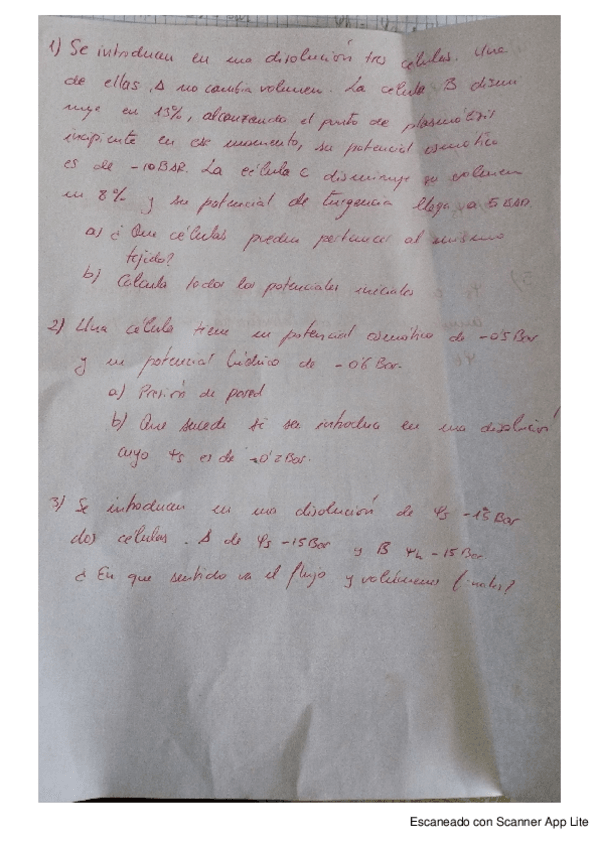 1) Se introducen en una disolución tres células. Una
de ellas, A no cambia volumen. La célula B dismi
nuye en 13%, alcanzando el punto de plasmólisis
incipiente en ese momento, su potencial osmótico
es de -10 BAR. La célula C disminuye su volumen
un 8% y su potencial de turgencia llega a 5 BAR
a) ¿Que células pueden pertenecer al mismo
tejido?
b) Calcula todos los potenciales iniciales
2) Una célula tiene un potencial osmótico de -0'5 Bar
y un potencial hídrico de -0'6 Bar.
a) Presión de pared
b) Que sucede si se introduce en una disolución
cuyo Ψs es de -0'2 Bar.
3) Se introducen en una disolución de Ψs -15 Bar
dos células. A de Ψs -15 Bar y B Ψh -15 Bar
¿ En que sentido va el flujo y volúmenes finales?
Escaneado con Scanner App Lite